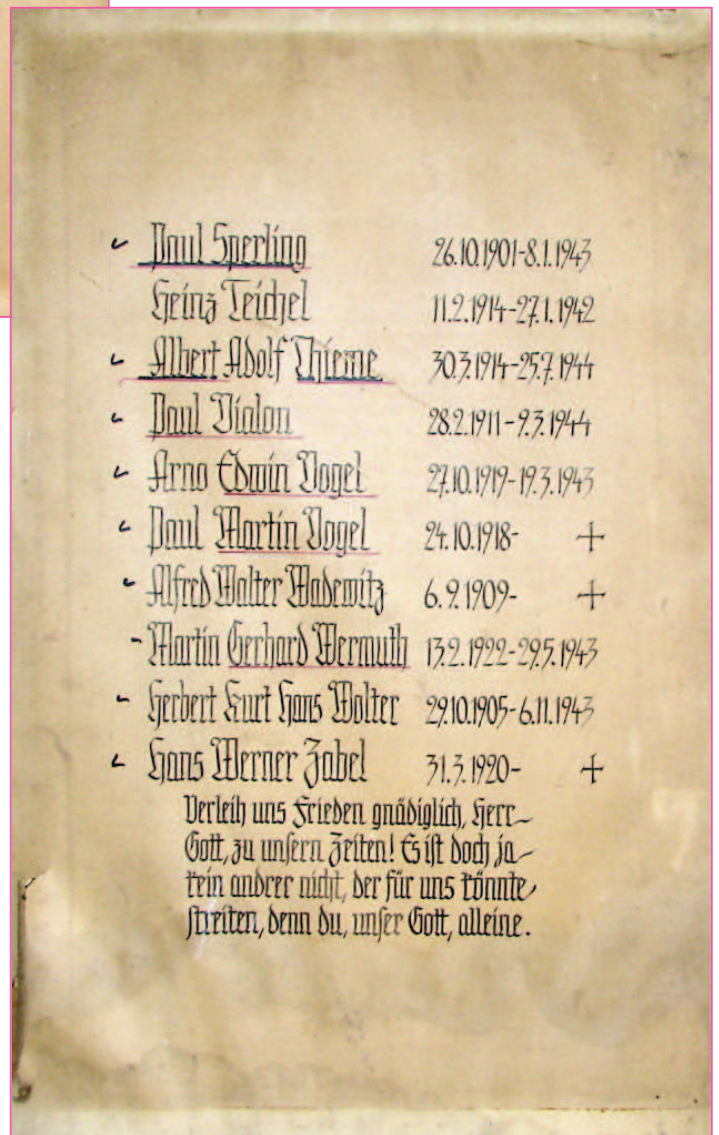 Paul Sperling 26.10.1901-8.1.1943
Heinz Teichel 11.2.1914-27.1.1942
Albert Adolf Thieme 30.3.1914-25.7.1944
Paul Vialon 28.2.1911-9.3.1944
Arno Edwin Vogel 27.10.1919-19.3.1943
Paul Martin Vogel 24.10.1918- +
Alfred Walter Wademitz 6.9.1909- +
Martin Gerhard Wermuth 13.2.1922-29.5.1943
Herbert Kurt Hans Wolter 29.10.1905-6.11.1943
Hans Werner Zabel 31.3.1920- +
Verleih uns Frieden gnädiglich, Herr
Gott, zu unsern Zeiten! Es ist doch ja
kein andrer nicht, der für uns könnte
streiten, denn du, unser Gott, alleine.